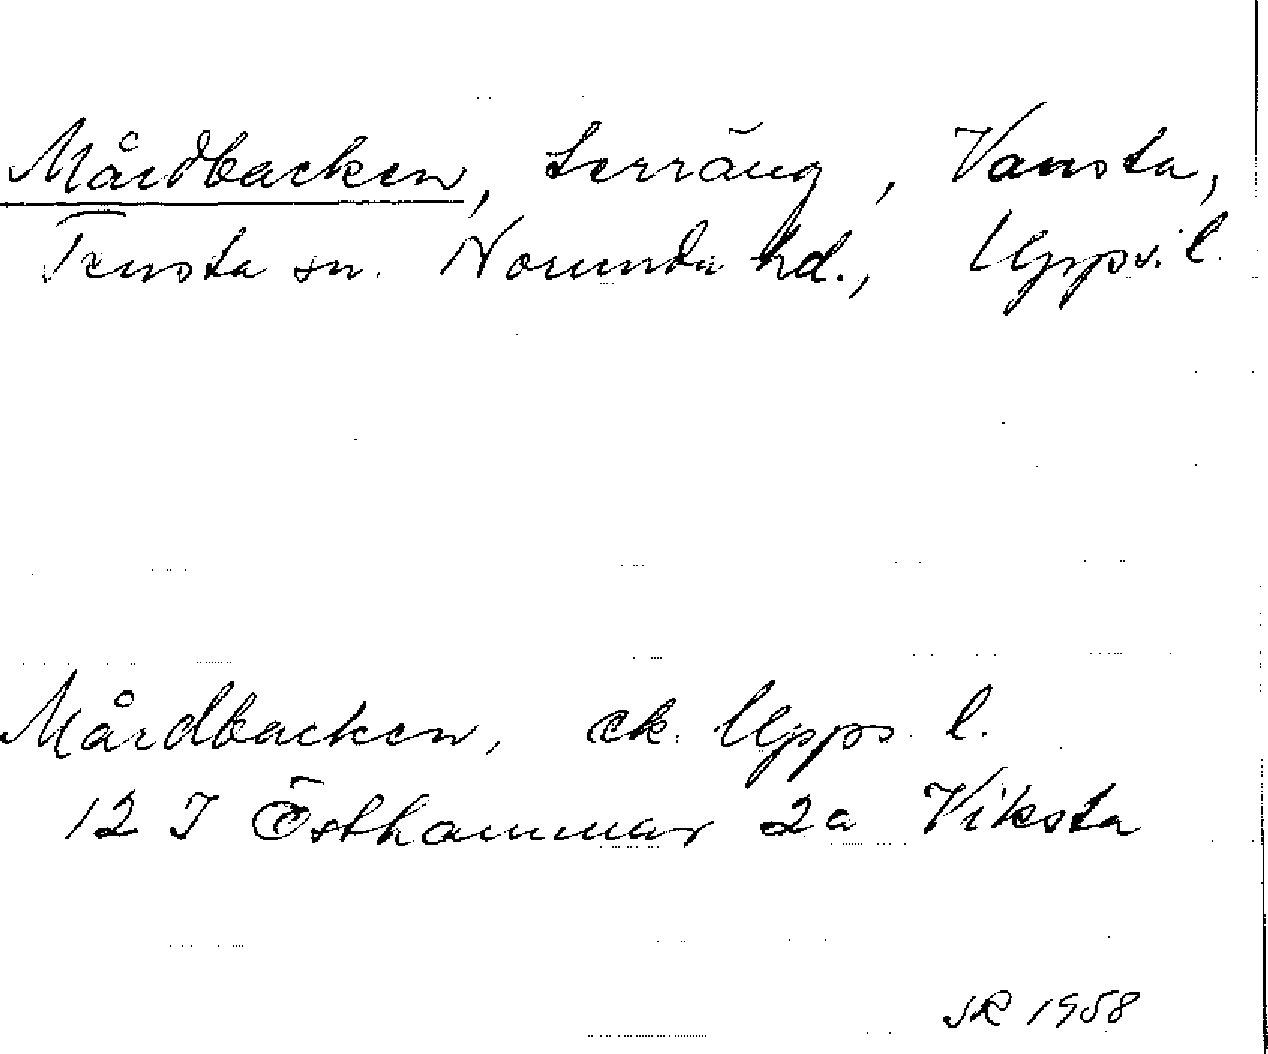 Mårdbacken, terräng, Vansta,
Tensta sn. Norunda hd., Upps. l.
Mårdbacken, ek. Upps. l.
12 I Östhammar 2a Viksta
JR 1958